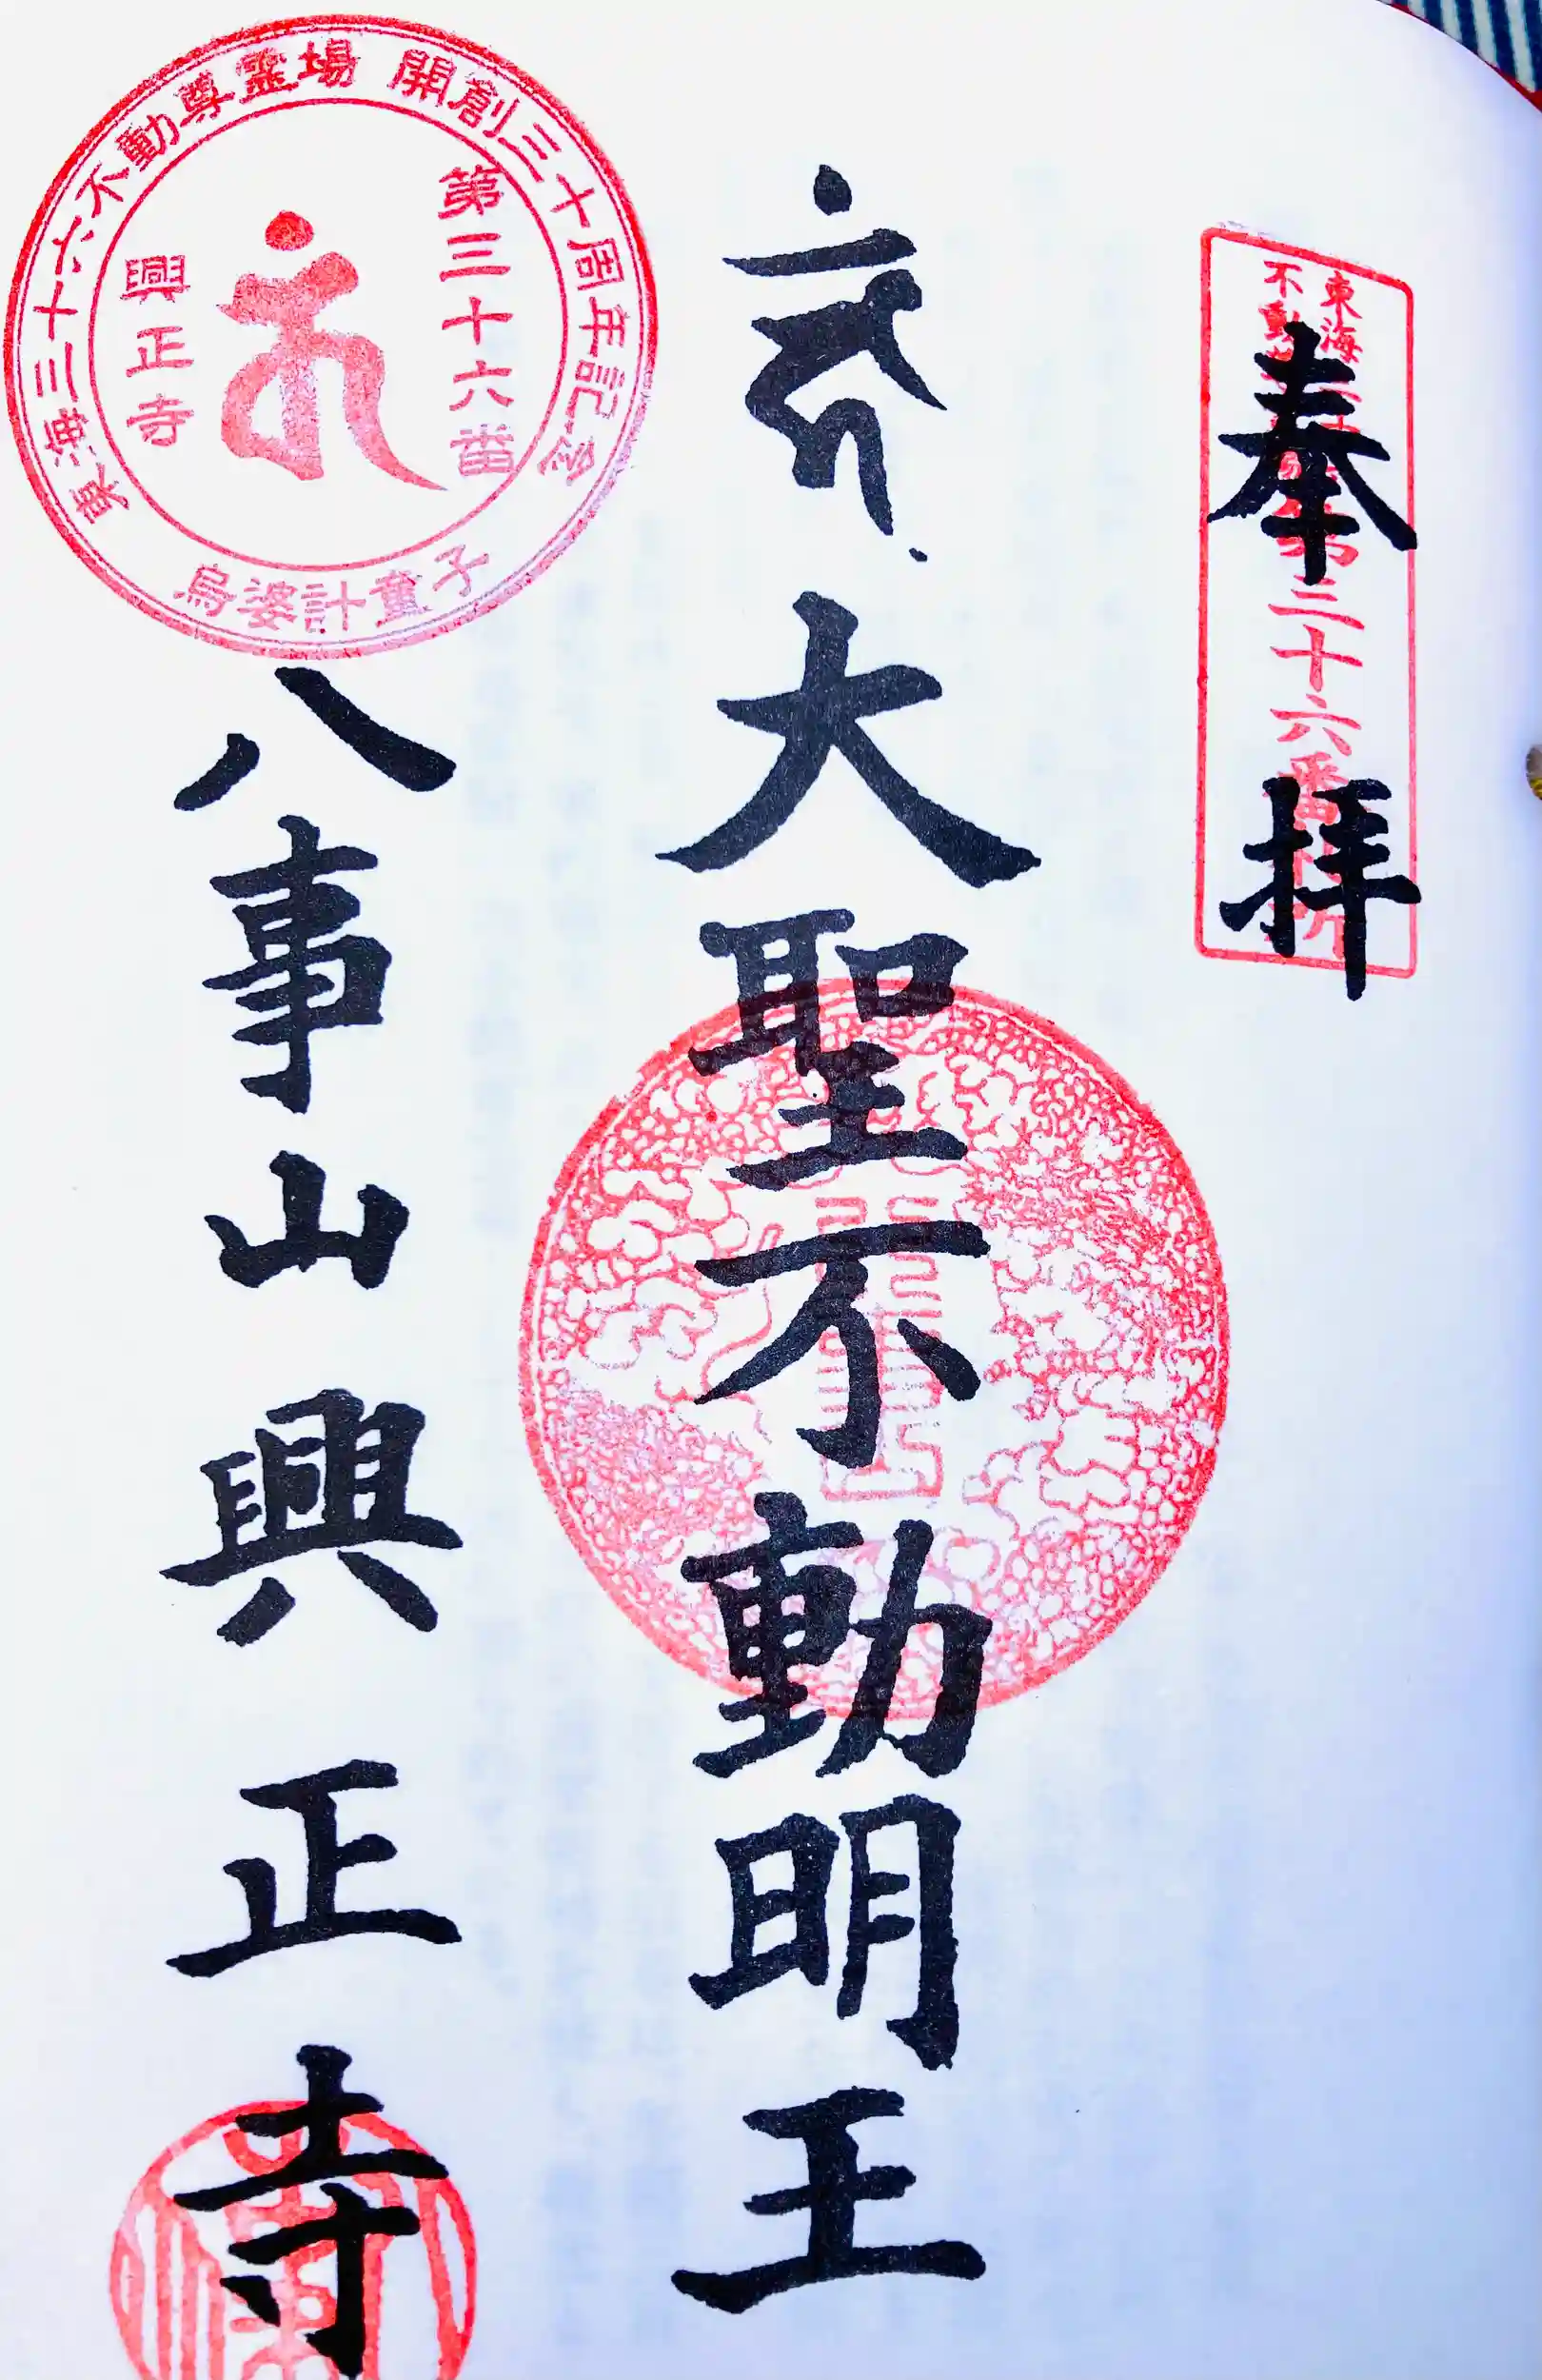 奉拝
大聖不動明王
八事山興正寺
東海三十六不動尊霊場 開創三十周年記念
第三十六番
興正寺
烏婆計童子